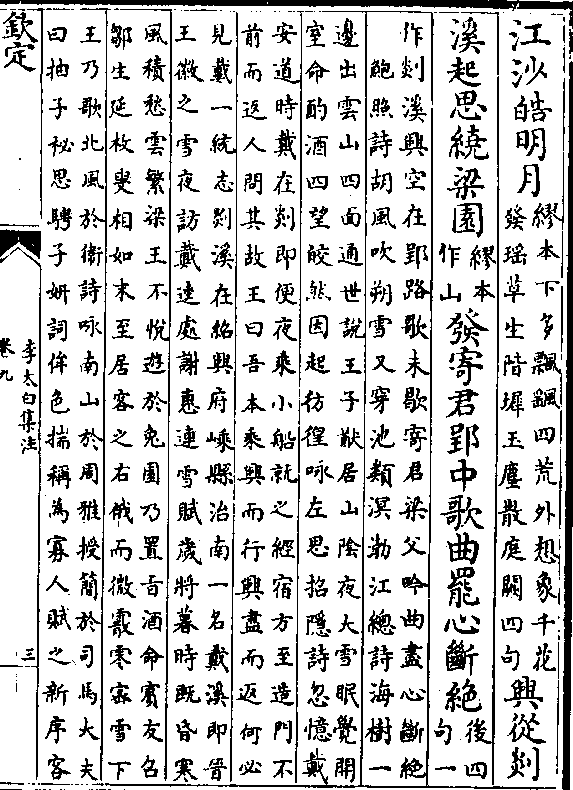 江沙皓明月繆本下多飄飄四荒外想象千花發瑤草生階墀玉塵散庭闕四句興從剡
溪起思繞梁園繆本作山發寄君郢中歌曲罷心斷絶後四句一
作剡溪興空在郢路歌未歇寄君梁父吟曲盡心斷絶
鮑照詩胡風吹朔雪又穿池類溟渤江總詩海樹一
邊出雲山四面通世說王子猷居山陰夜大雪眠覺開
室命酌酒四望皎然因起彷徨咏左思招隱詩忽憶戴
安道時戴在剡即便夜乘小船就之經宿方至造門不
前而返人問其故王曰吾本乘興而行興盡而返何必
見戴一統志剡溪在紹興府嵊縣治南一名戴溪即晉
王徽之雪夜訪戴逵處謝惠連雪賦歲將暮時既昏寒
風積愁雲繁梁王不悅遊於兔園乃置旨酒命賓友召
鄒生延枚叟相如末至居客之右俄而微霰零密雪下
王乃歌北風於衛詩咏南山於周雅授簡於司馬大夫
曰抽子秘思騁子妍詞侔色揣稱為寡人賦之新序客
欽定
李太白集注
卷九
三